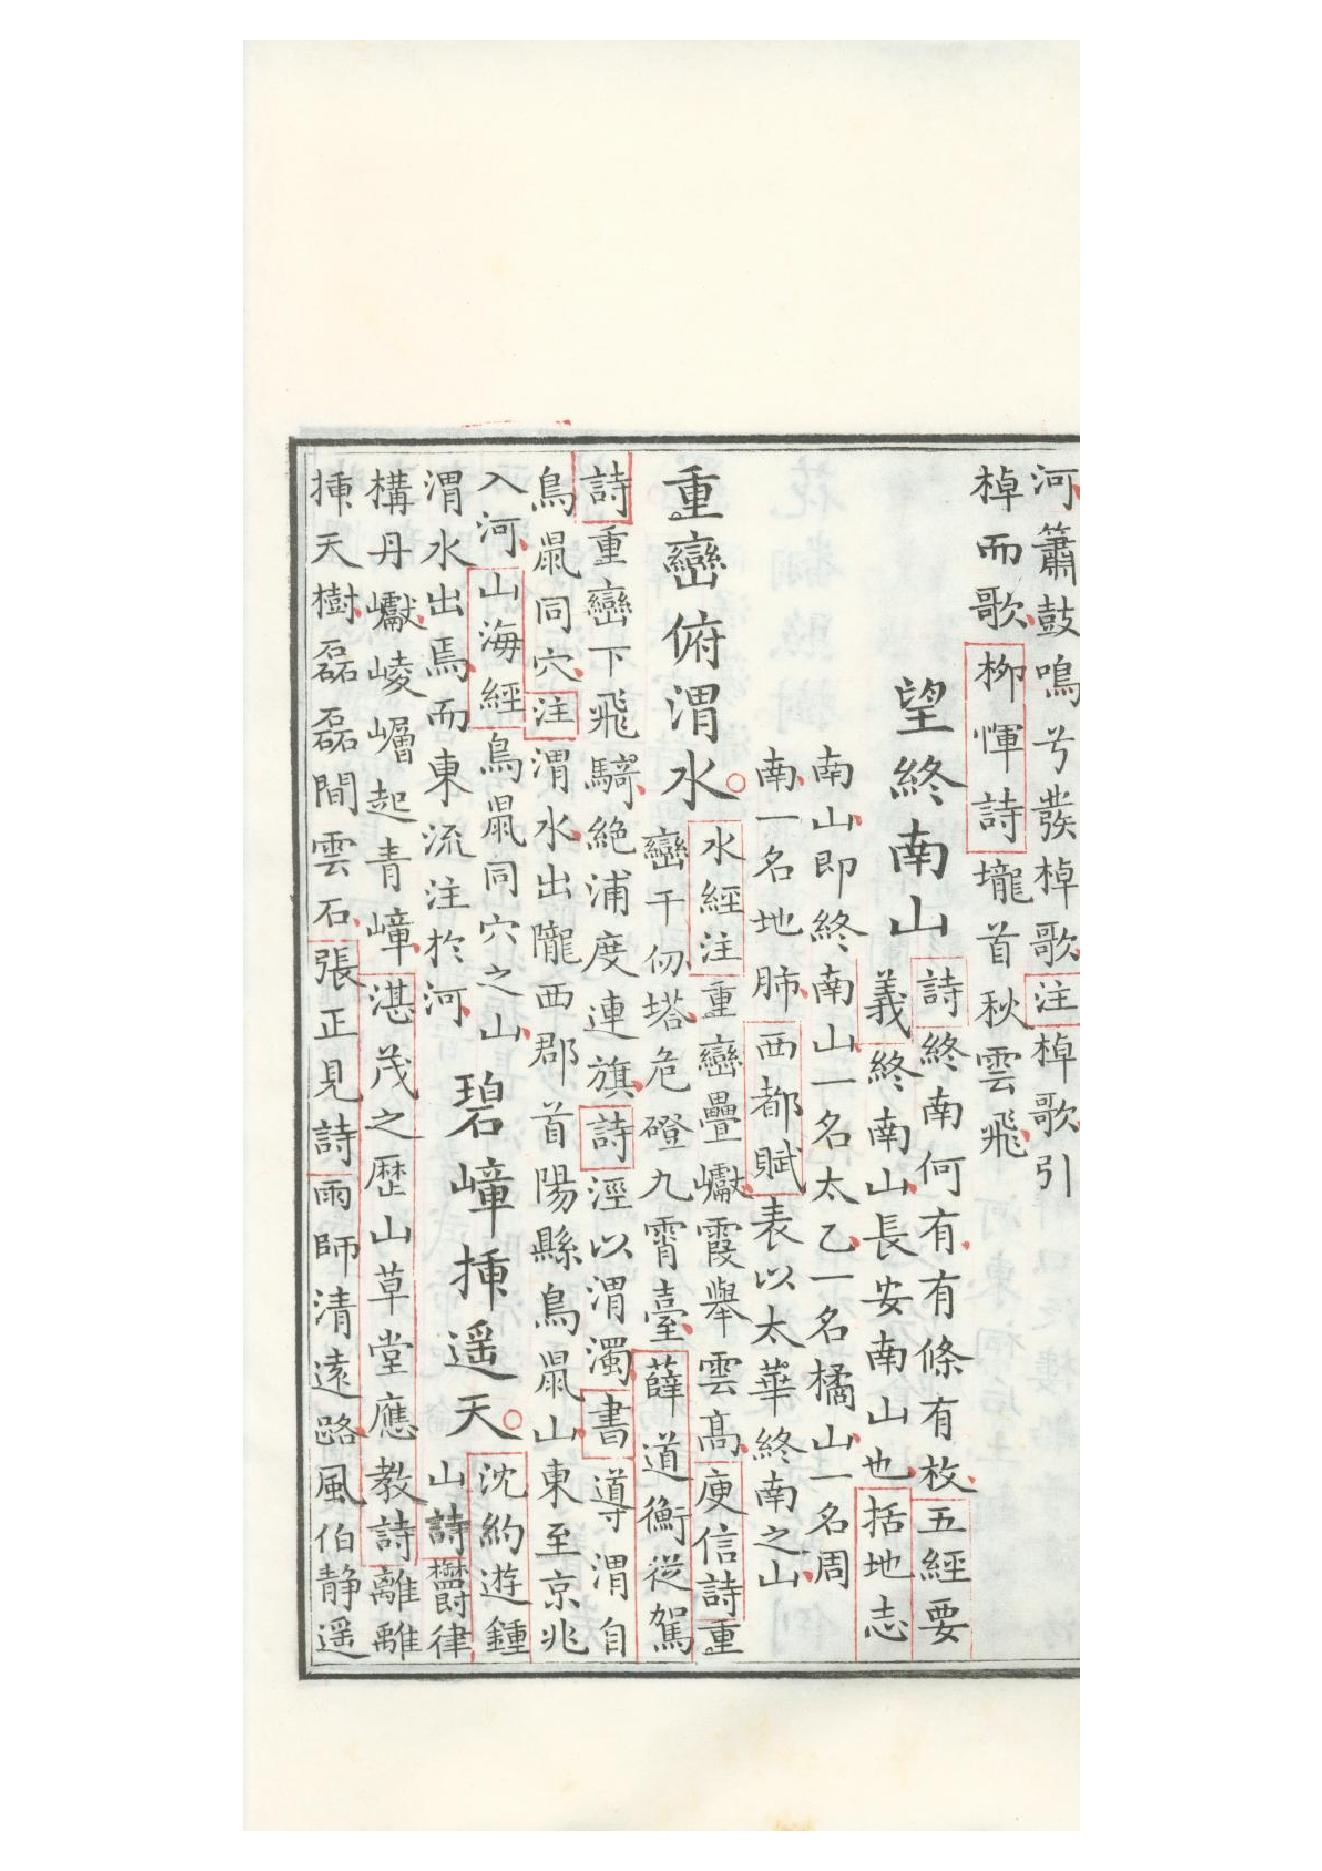 河簫鼓鳴兮發棹歌注棹歌引
棹而歌柳惲詩壠首秋雲飛
望終南山
詩終南何有有條有枚五經要
義終南山長安南山也括地志
南山即終南山一名太乙一名橘山一名周
南一名地肺西都賦表以太華終南之山
重巒俯渭水
水經注重巒疊巘霞舉雲高庾信詩重
巒千仞塔危磴九霄臺薛道衡從駕
詩重巒下飛騎絶浦度連旗詩涇以渭濁書導渭自
鳥鼠同穴注渭水出隴西郡首陽縣鳥鼠山東至京兆
入河山海經鳥鼠同穴之山
渭水出焉而東流注於河
碧嶂揷遥天
沈約遊鍾
山詩欝律
構丹巘崚嶒起青嶂湛茂之歷山草堂應教詩離離
揷天樹磊磊間雲石張正見詩雨師清遠路風伯静遥